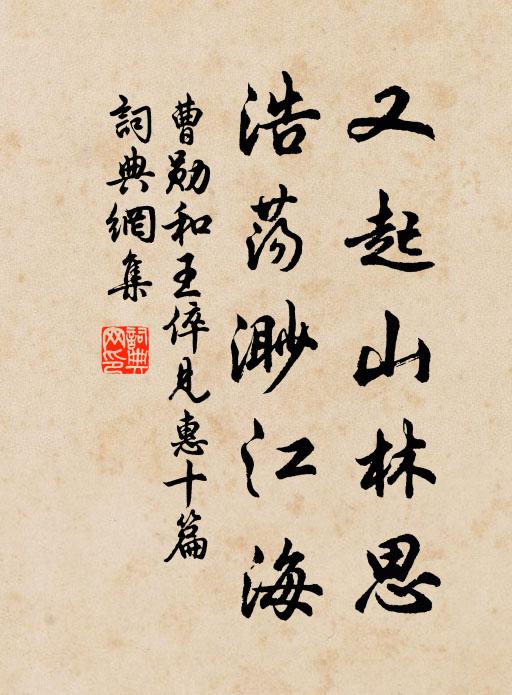 又起山林思
浩蕩渺江海
曹勛和王倅見惠十篇
詞典網集
詞典網印